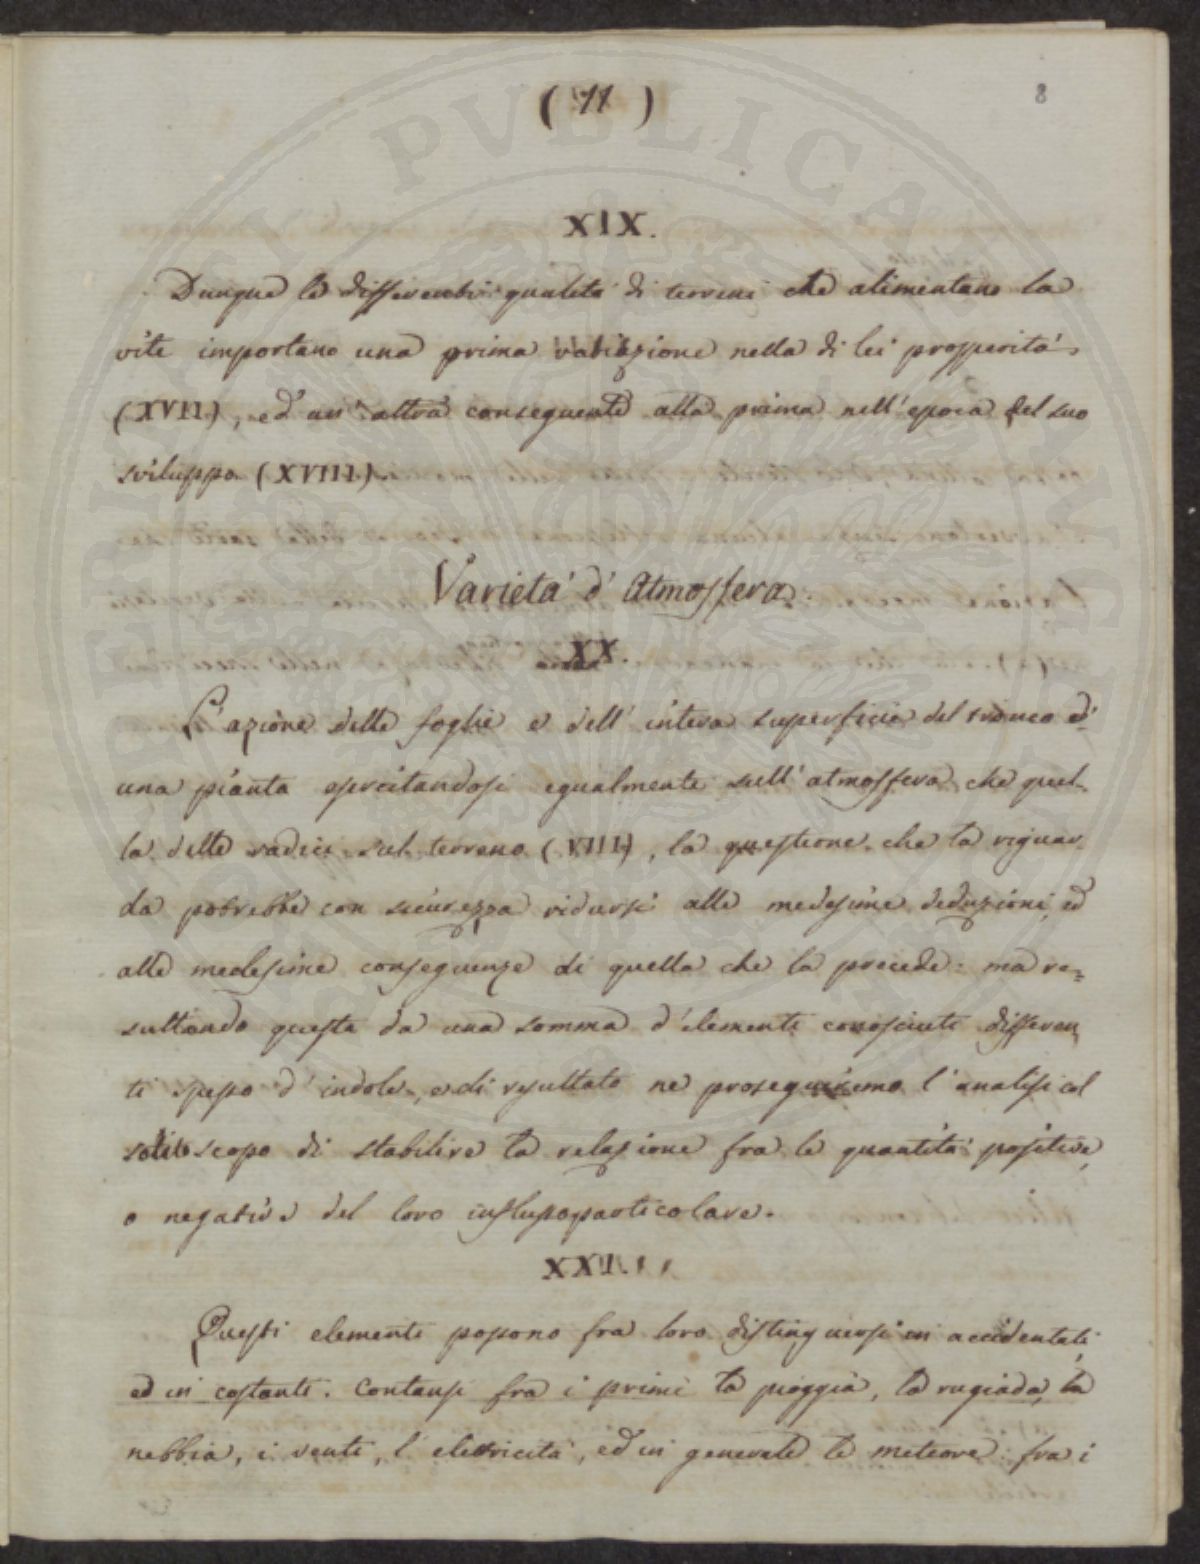 ( 11 )
8
XIX.
Dunque le differenti qualità di terreni che alimentano la
vite importano una prima variazione nella di lei prosperità
(XVII), ed un' altra conseguente alla prima nell' epoca del suo
sviluppo (XVIII).
Varietà d' Atmosfera.
XX.
L' azione delle foglie e dell' intera superficie del tronco d'
una pianta esercitandosi egualmente sull' atmosfera che quel-
la delle radici sul terreno (VIII), la questione che la riguar-
da potrebbe con sicurezza ridursi alle medesime deduzioni, ed
alle medesime conseguenze di quella che la precede: ma re=
sultando questa da una somma d' elementi conosciuti differen
ti spesso d' indole, e di resultato ne proseguiremo l' analisi col
solito scopo di stabilire la relazione fra le quantità positive,
o negative del loro influsso particolare.
XXI.
Questi elementi possono fra loro distinguersi in accidentali,
ed in costanti. Contansi fra i primi la pioggia, la rugiada, la
nebbia, i venti, l' elettricità, ed in generale le meteore: fra i